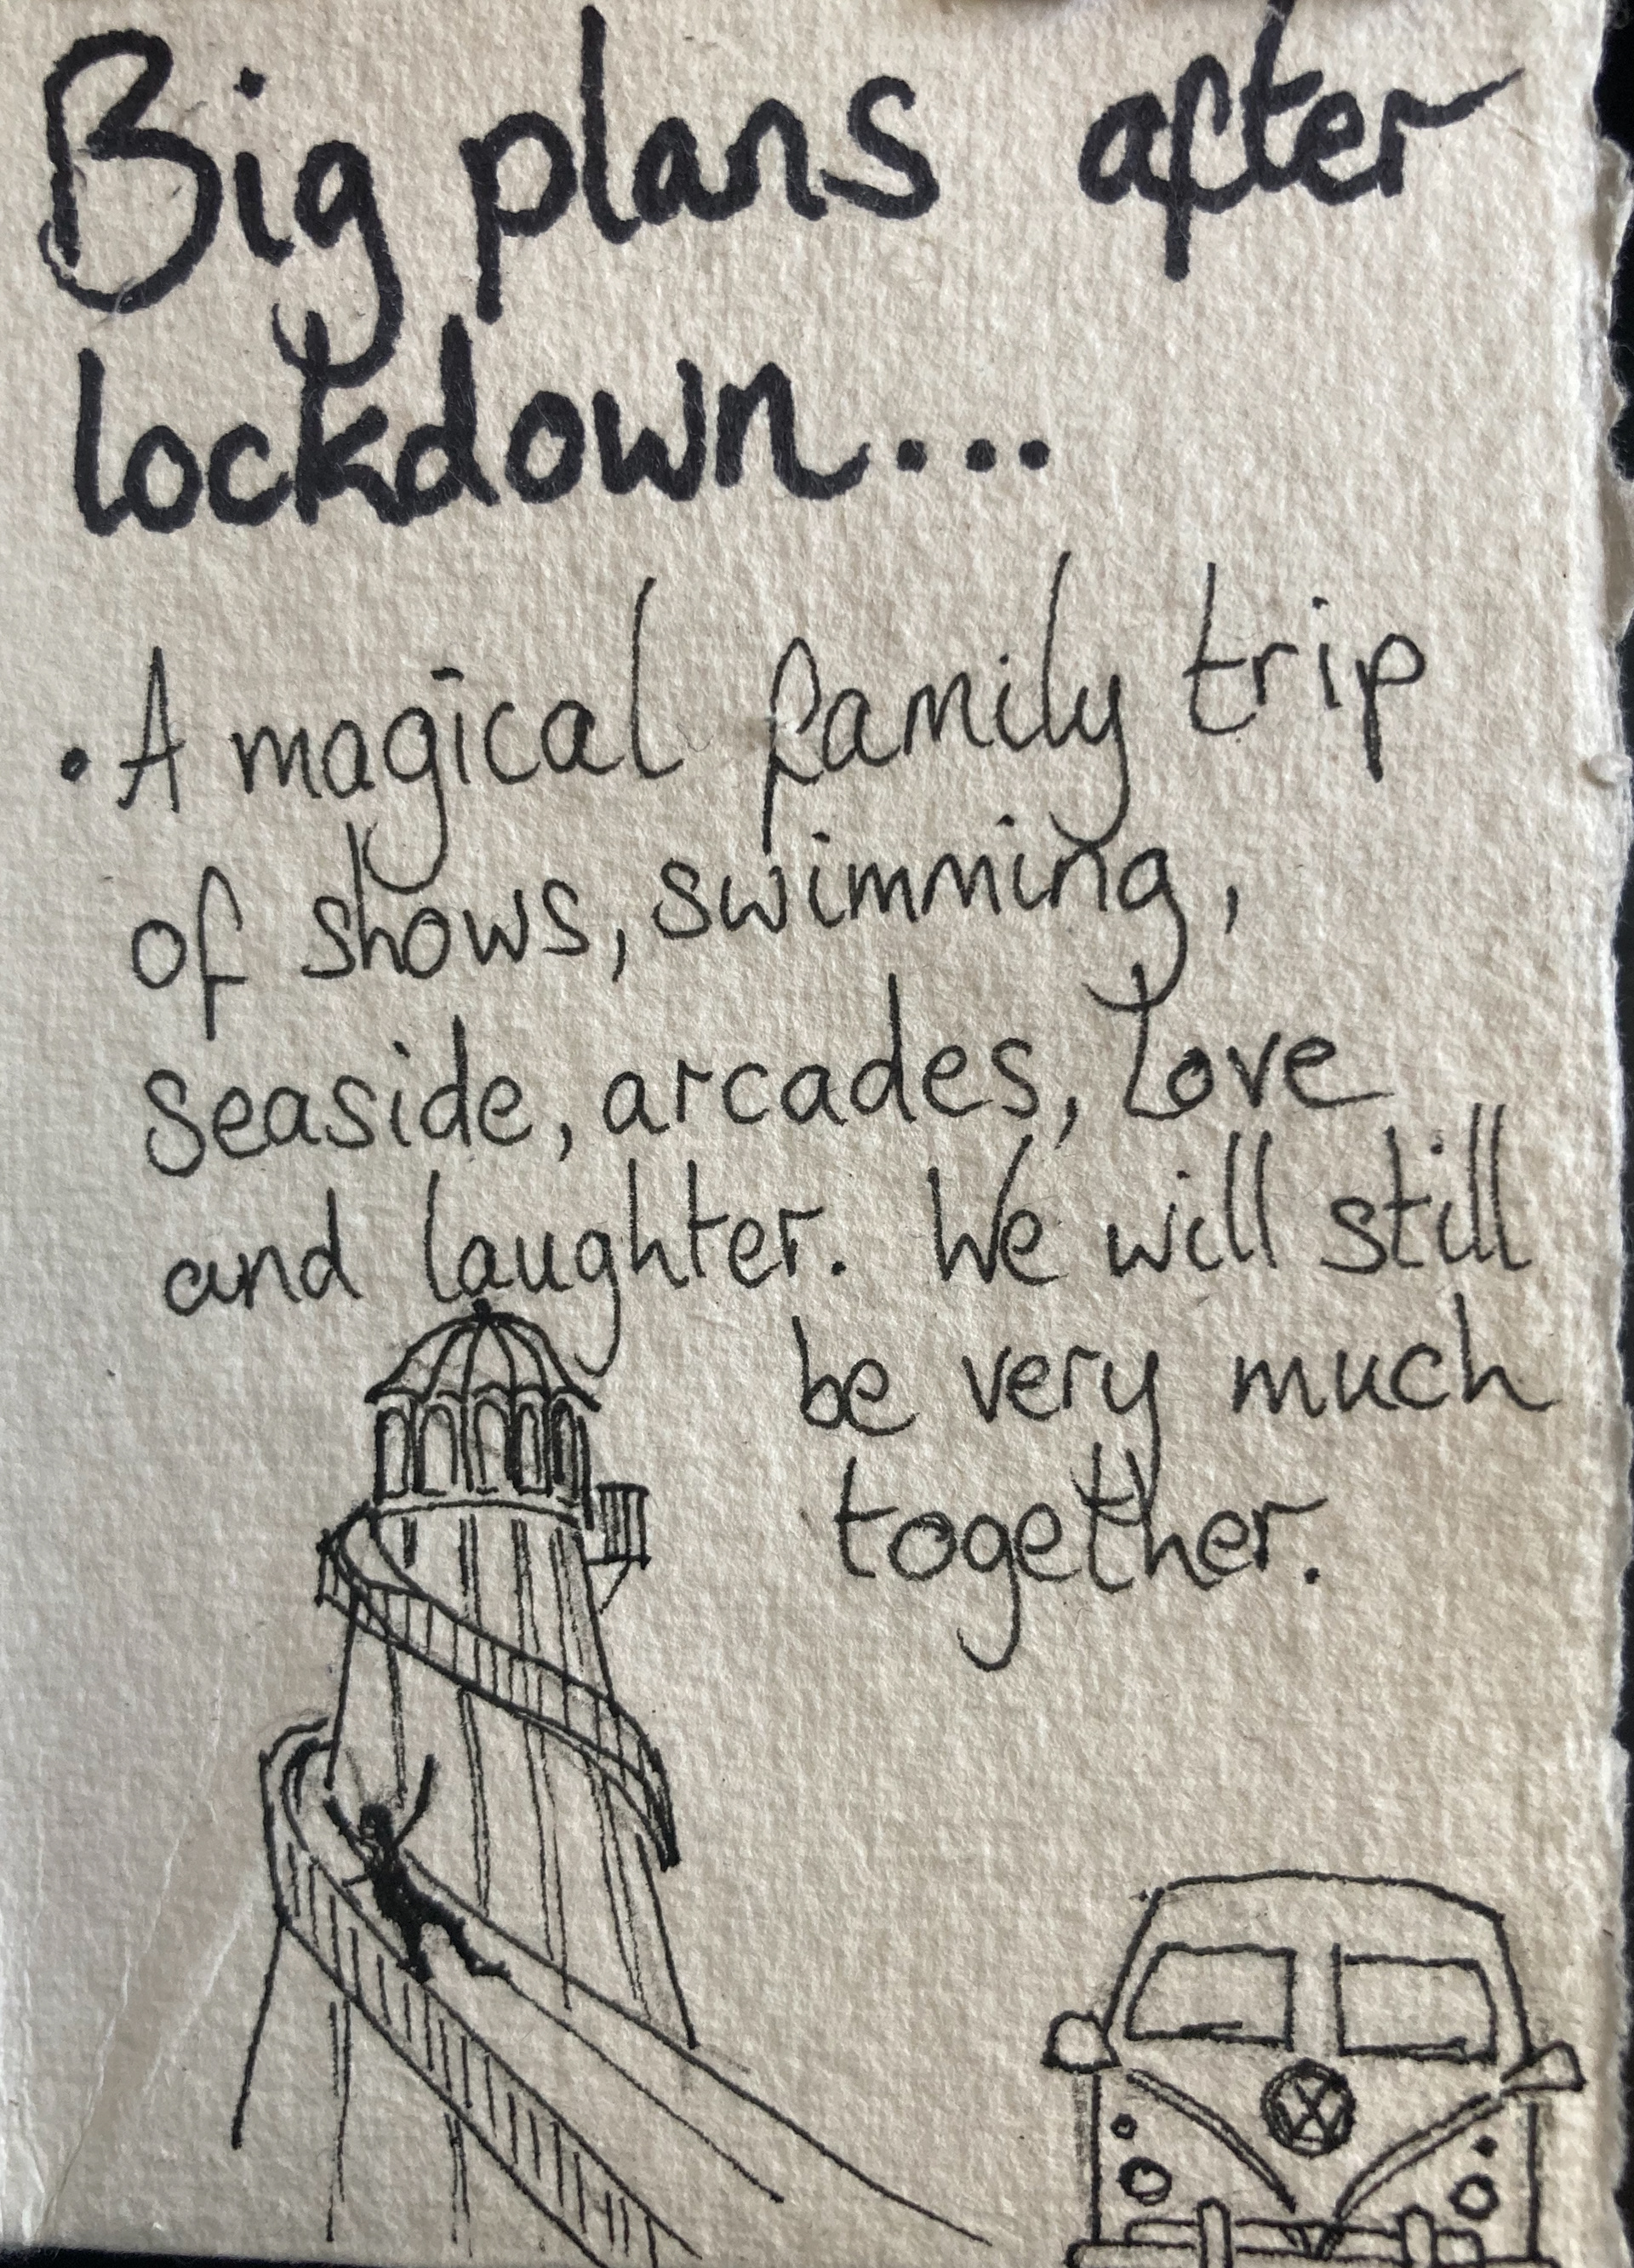 Big plans after
lockdown...
• A magical family trip
of shows, swimming,
seaside, arcades, love
and laughter. We will still
be very much
together.
VW